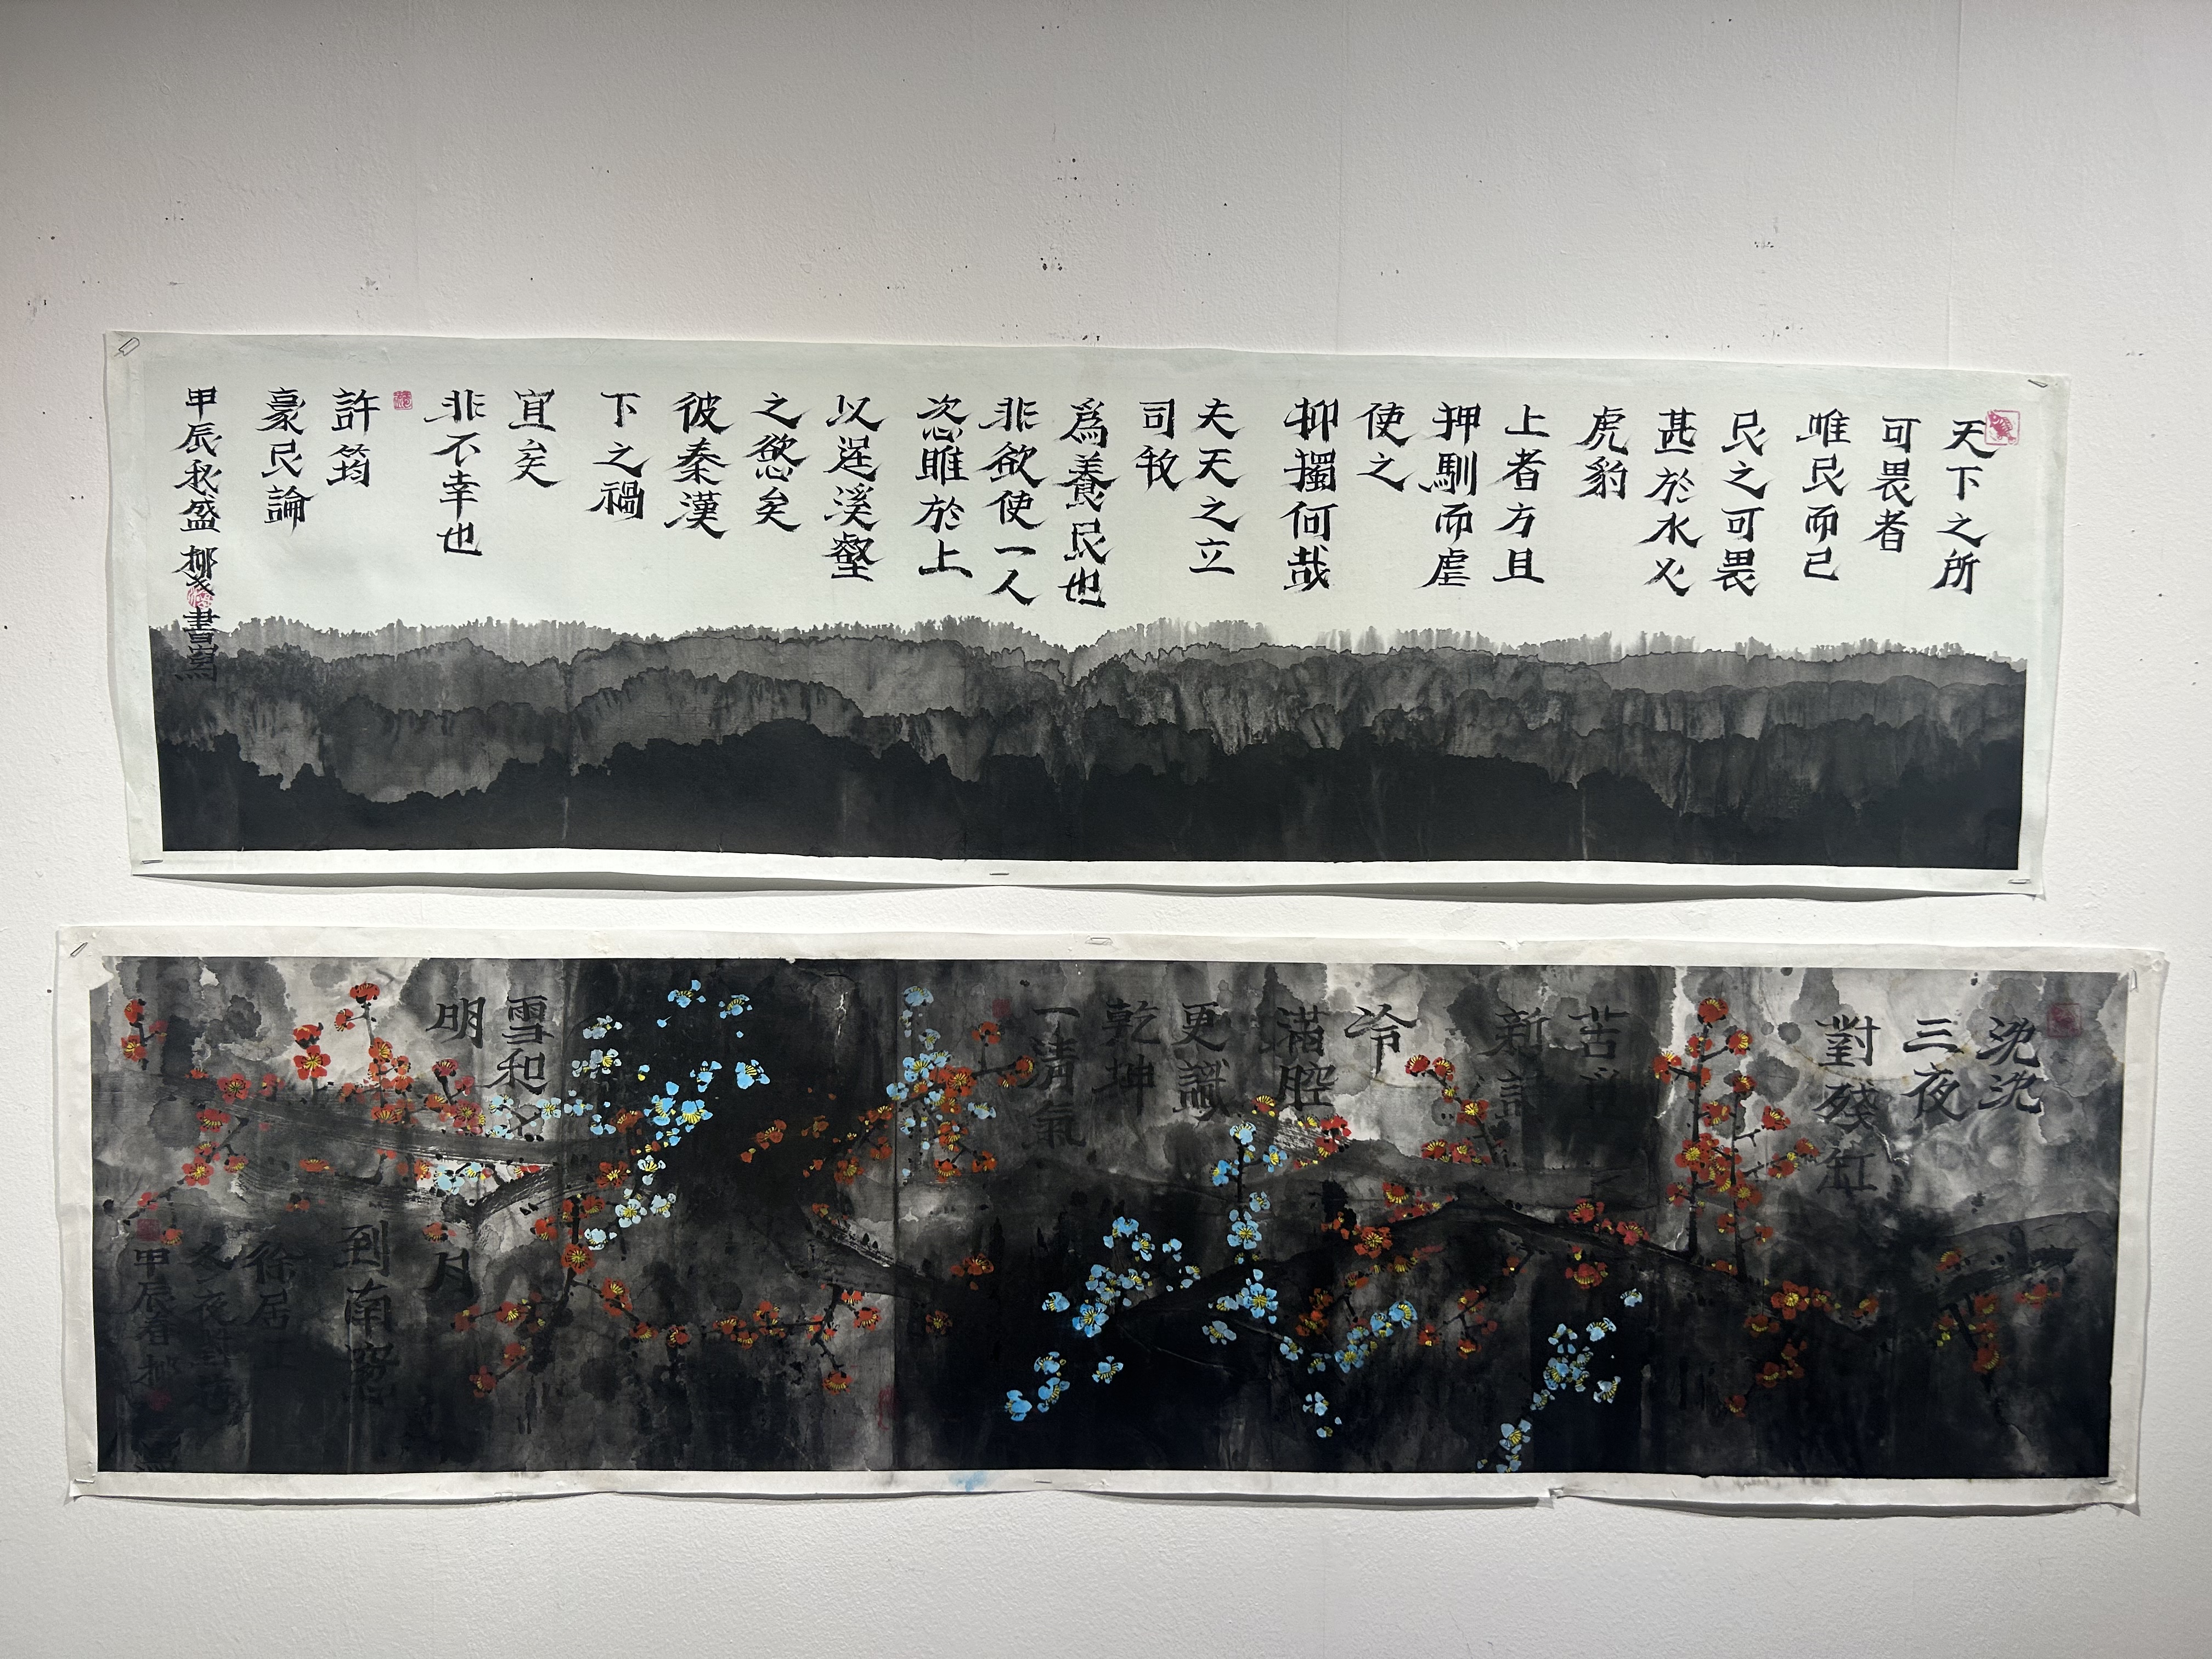 天下之所
可畏者
唯民而已
民之可畏
甚於水火
虎豹
上者方且
押馴而虐
使之
抑獨何哉
夫天之立
司牧
爲養民也
非欲使一人
恣睢於上
以逞溪壑
之慾矣
彼秦漢
下之禍
宜矣
非不幸也
許筠
豪民論
甲辰秋盛 書寫
沈沈
三夜
對殘缸
苦
新詩
冷
滿腔
更識
乾坤
一清氣
雪和
明
月
到南窓
徐居正
冬夜
甲辰春